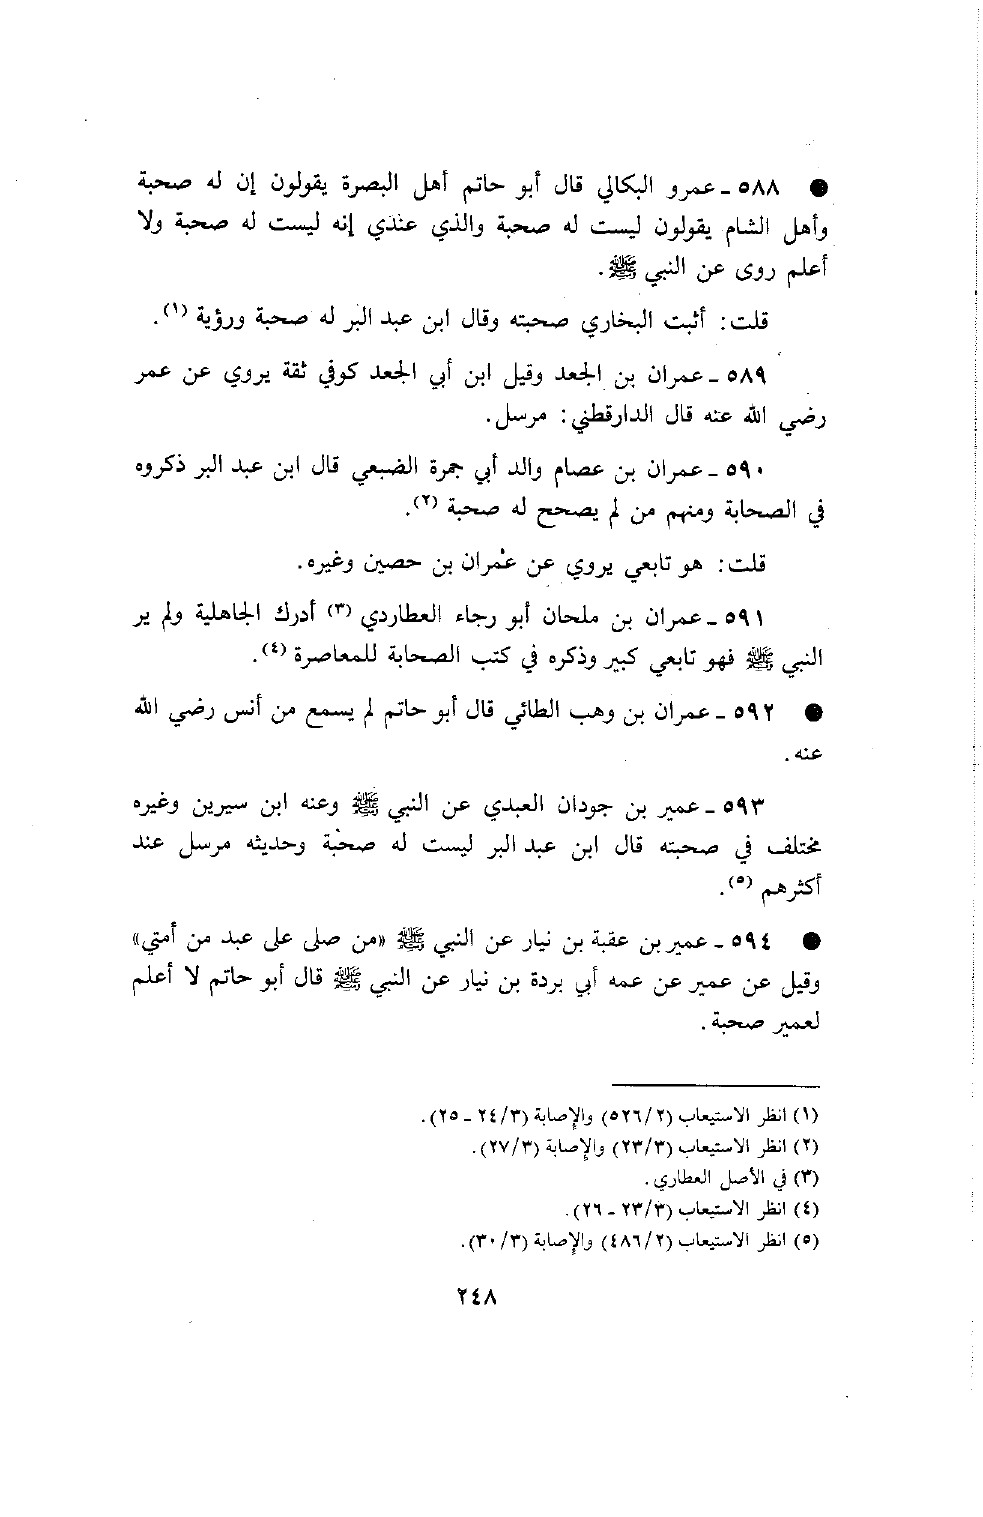 ● ٥٨٨ ـ عمرو البكالي قال أبو حاتم أهل البصرة يقولون إن له صحبة
وأهل الشام يقولون ليست له صحبة والذي عندي إنه ليست له صحبة ولا
أعلم روى عن النبي ﷺ.
قلت: أثبت البخاري صحبته وقال ابن عبد البر له صحبة ورؤية (١).
٥٨٩ ـ عمران بن الجعد وقيل ابن أبي الجعد كوفي ثقة يروي عن عمر
رضي الله عنه قال الدارقطني: مرسل.
٥٩٠ ـ عمران بن عصام والد أبي جمرة الضبعي قال ابن عبد البر ذكروه
في الصحابة ومنهم من لم يصحح له صحبة (٢).
قلت: هو تابعي يروي عن عمران بن حصين وغيره.
٥٩١ ـ عمران بن ملحان أبو رجاء العطاردي (٣) أدرك الجاهلية ولم ير
النبي ﷺ فهو تابعي كبير وذكره في كتب الصحابة للمعاصرة (٤).
● ٥٩٢ ـ عمران بن وهب الطائي قال أبو حاتم لم يسمع من أنس رضي الله
عنه.
٥٩٣ ـ عمير بن جودان العبدي عن النبي ﷺ وعنه ابن سيرين وغيره
مختلف في صحبته قال ابن عبد البر ليست له صحبة وحديثه مرسل عند
أكثرهم (٥).
● ٥٩٤ ـ عمير بن عقبة بن نيار عن النبي ﷺ «من صلى على عبد من أمتي»
وقيل عن عمير عن عمه أبي بردة بن نيار عن النبي ﷺ قال أبو حاتم لا أعلم
لعمير صحبة.
(١) انظر الاستيعاب (٥٢٦/٢) والإصابة (٢٤/٣ ـ ٢٥).
(٢) انظر الاستيعاب (٢٣/٣) والإصابة (٢٧/٣).
(٣) في الأصل العطاري.
(٤) انظر الاستيعاب (٢٣/٣ ـ ٢٦).
(٥) انظر الاستيعاب (٤٨٦/٢) والإصابة (٣٠/٣).
٢٤٨